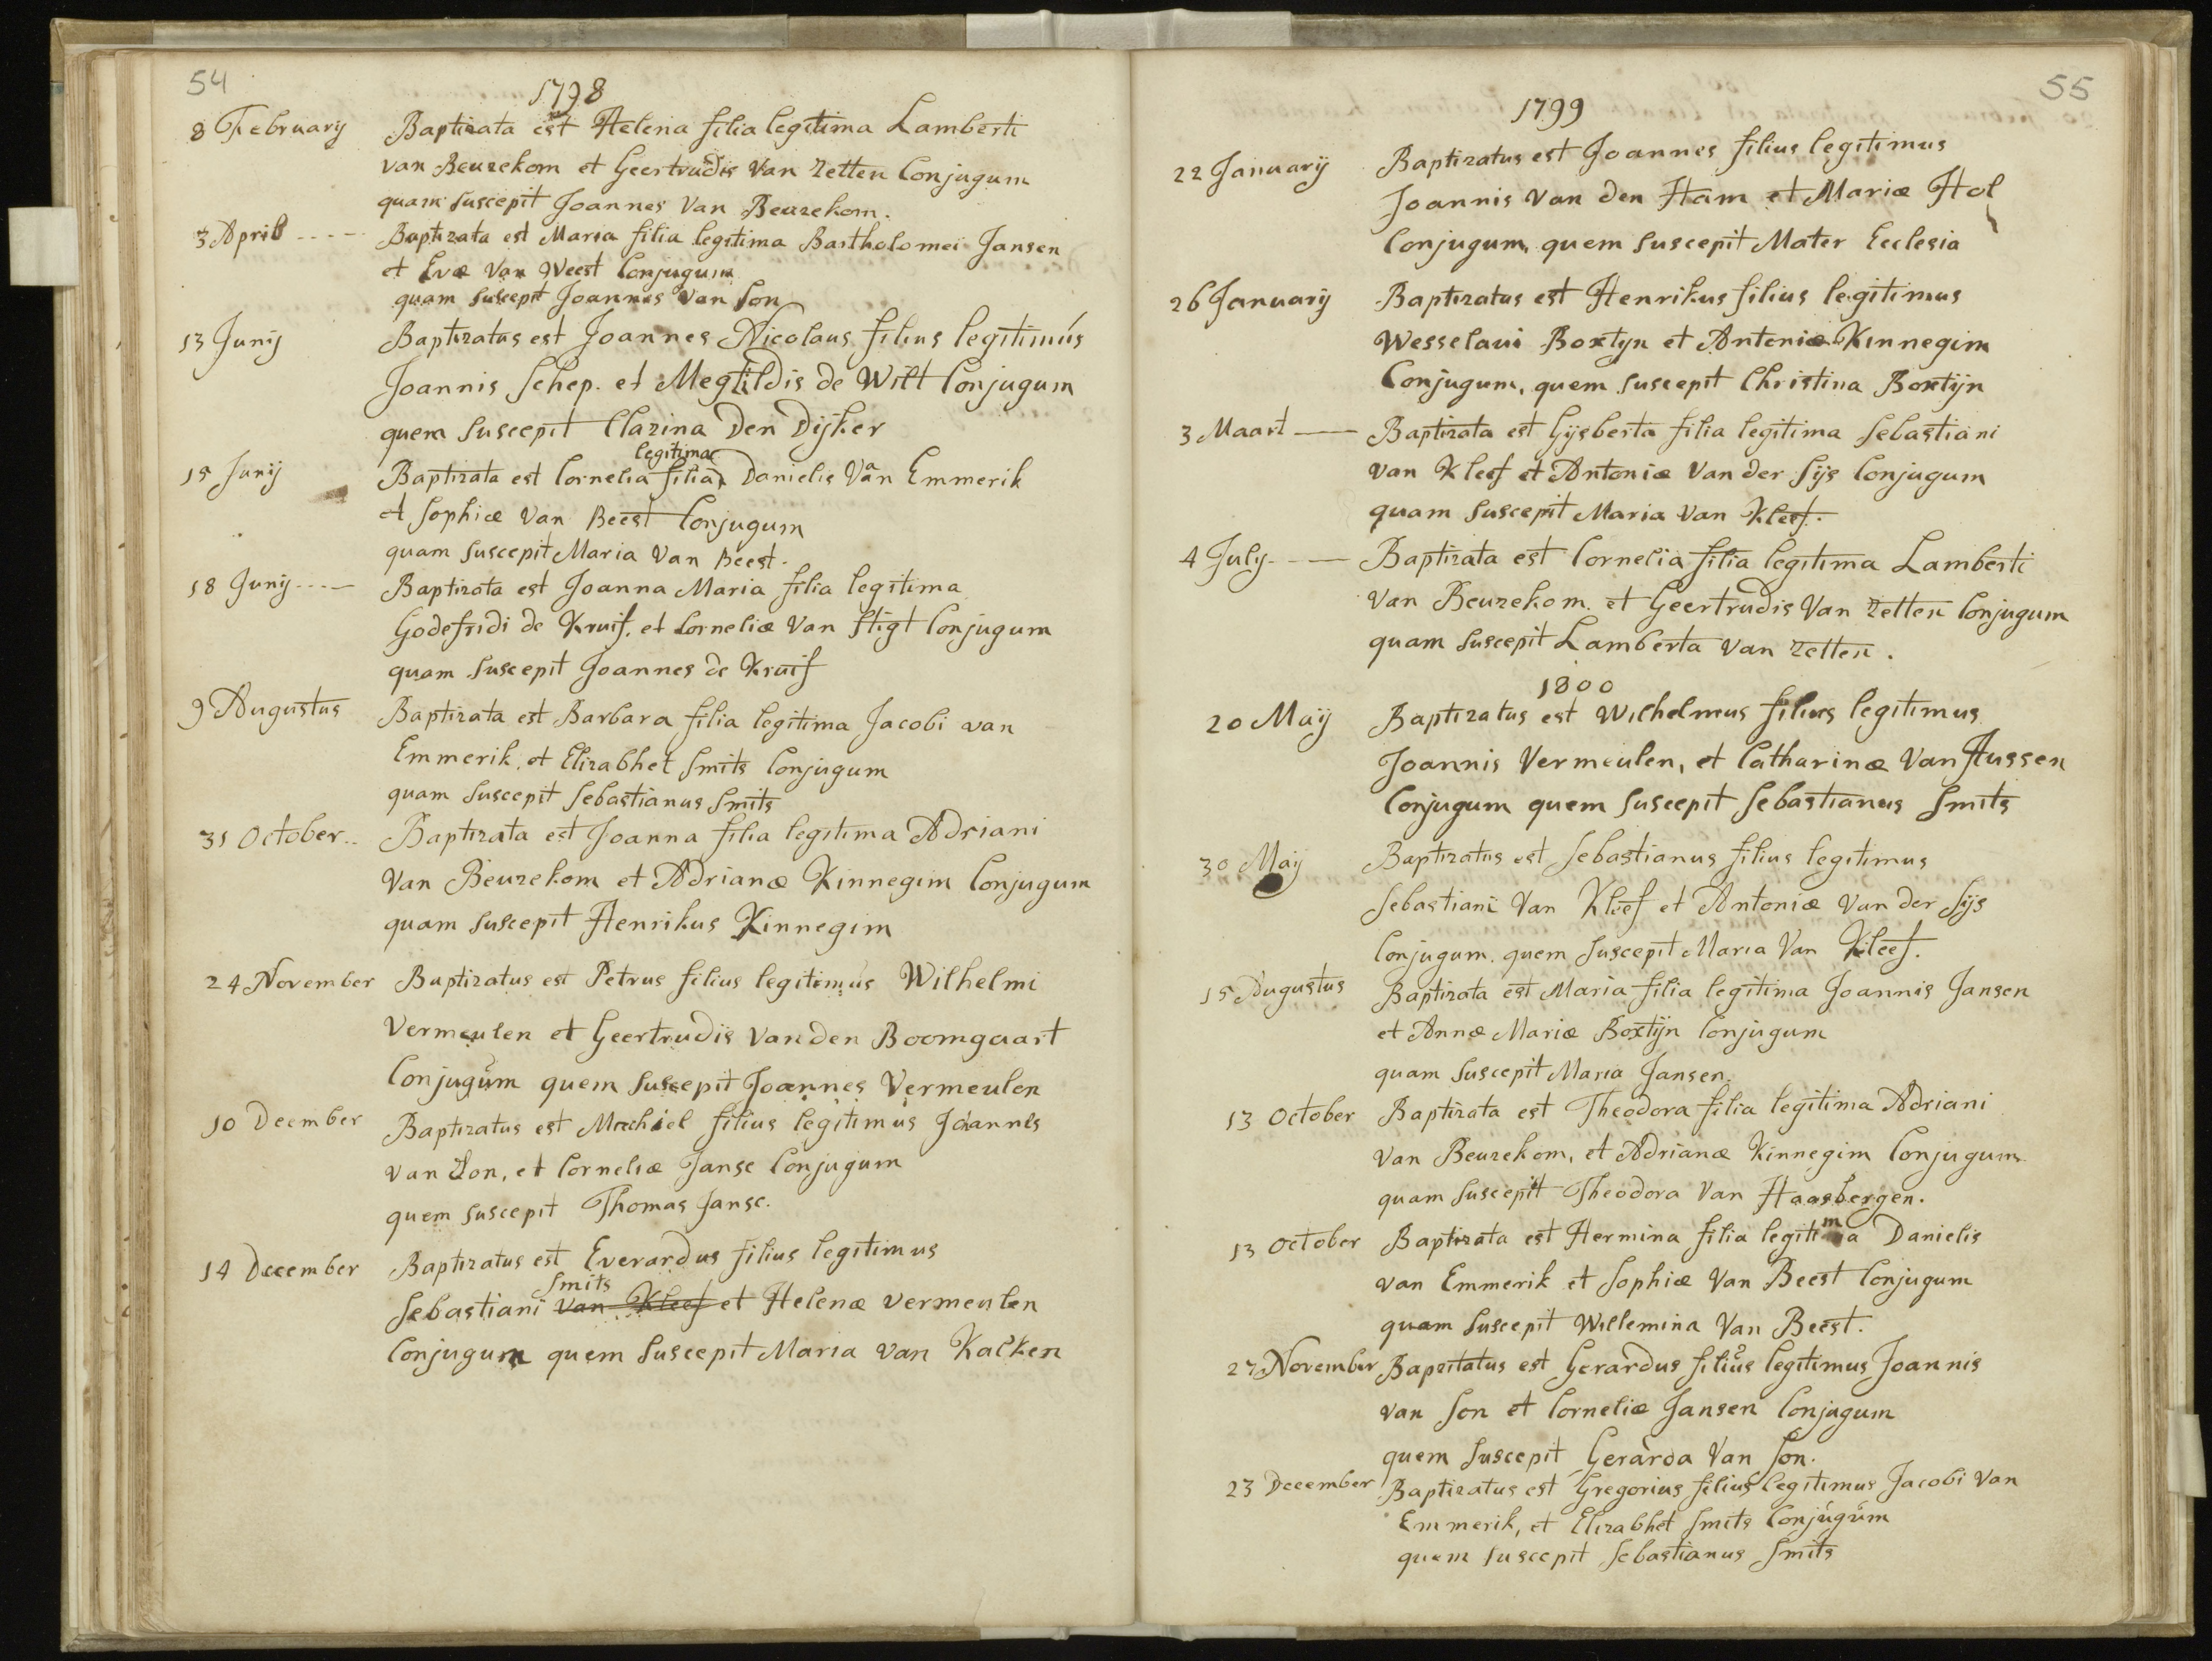 54
1798
8 February Baptizata est Helena filia legitima Lamberti
van Beuzekom et Geertrudis van Zetten Conjugum
quam suscepit Joannes Van Beuzekom.
3 April ---- Baptizata est Maria filia legitima Bartholomei Jansen
et Evæ Van Weest Conjugum
quam suscepit Joannes Van Son
13 Junij Baptizatus est Joannes Nicolaus filius legitimus
Joannis Schep. et Megtildis de Wilt Conjugum
quem suscepit Clazina Den Dijker
legitima
15 Junij Baptizata est Cornelia filia Danielis Van Emmerik
et Sophiæ Van Beest Conjugum
quam suscepit Maria Van Beest.
18 Junij ---- Baptizata est Joanna Maria filia legitima
Godefridi de Kruif, et Corneliæ Van Stigt Conjugum
quam suscepit Joannes de Kruif
9 Augustus Baptizata est Barbara filia legitima Jacobi van
Emmerik, et Elizabhet Smits Conjugum
quam suscepit Sebastianus Smits
31 October.. Baptizata est Joanna filia legitima Adriani
Van Beuzekom et Adrianæ Kinnegim Conjugum
quam suscepit Henrikus Kinnegim
24 November Baptizatus est Petrus filius legitimus Wilhelmi
Vermeulen et Geertrudis Van den Boomgaart
Conjugum quem suscepit Joannes Vermeulen
10 Deember Baptizatus est Machiel filius legitimus Joannes
van Son, et Corneliæ Janse Conjugum
quem suscepit Thomas Janse.
14 December Baptizatus est Everardus filius legitimus
Smits
Sebastiani van Kleef et Helenæ vermeulen
Conjugum quem suscepit Maria van Kalken
55
1799
22 January Baptizatus est Joannes filius legitimus
Joannis Van den Ham et Mariæ Hol
Conjugum, quem suscepit Mater Ecclesia
26 January Baptizatus est Henrikus filius legitimus
Wesselaui Boxtyn et Antoniæ Kinnegim
Conjugum, quem suscepit Christina Boxtijn
3 Maart — Baptizata est Gijsberta filia legitima Sebastiani
van Kleef et Antoniæ Van der Sijs Conjugum
quam suscepit Maria Van Kleef.
4 July -- — Baptizata est Cornelia filia legitima Lamberti
Van Beuzekom. et Geertrudis Van Zetten Conjugum
quam suscepit Lamberta Van Zetten.
1800
20 Maij Baptizatus est Wilhelmus filius legitimus
Joannis Vermeulen, et Catharinæ Van Hussen
Conjugum quem suscepit Sebastianus Smits
30 Maij Baptizatus est Sebastianus filius legitimus
Sebastiani Van Kleef et Antoniæ Van der Sijs
Conjugum. quem suscepit Maria Van Kleef.
15 Augustus Baptizata est Maria filia legitima Joannis Jansen
et Annæ Mariæ Boxtijn Conjugum
quam suscepit Maria Jansen.
13 October Baptizata est Theodora filia legitima Adriani
Van Beuzekom, et Adrianæ Kinnegim Conjugum
quam suscepit Theodora Van Haasbergen.
13 October Baptizata est Hermina filia legitima Danielis
van Emmerik et Sophiæ Van Beest Conjugum
quam suscepit Willemina Van Beest.
27 November Bapzitatus est Gerardus filius legitimus Joannis
van Son et Corneliæ Jansen Conjugum
quem suscepit Gerarda Van Son.
23 December Baptizatus est Gregorius filius legitimus Jacobi Van
Emmerik, et Elizabhet Smits Conjugum
quem suscepit Sebastianus Smits